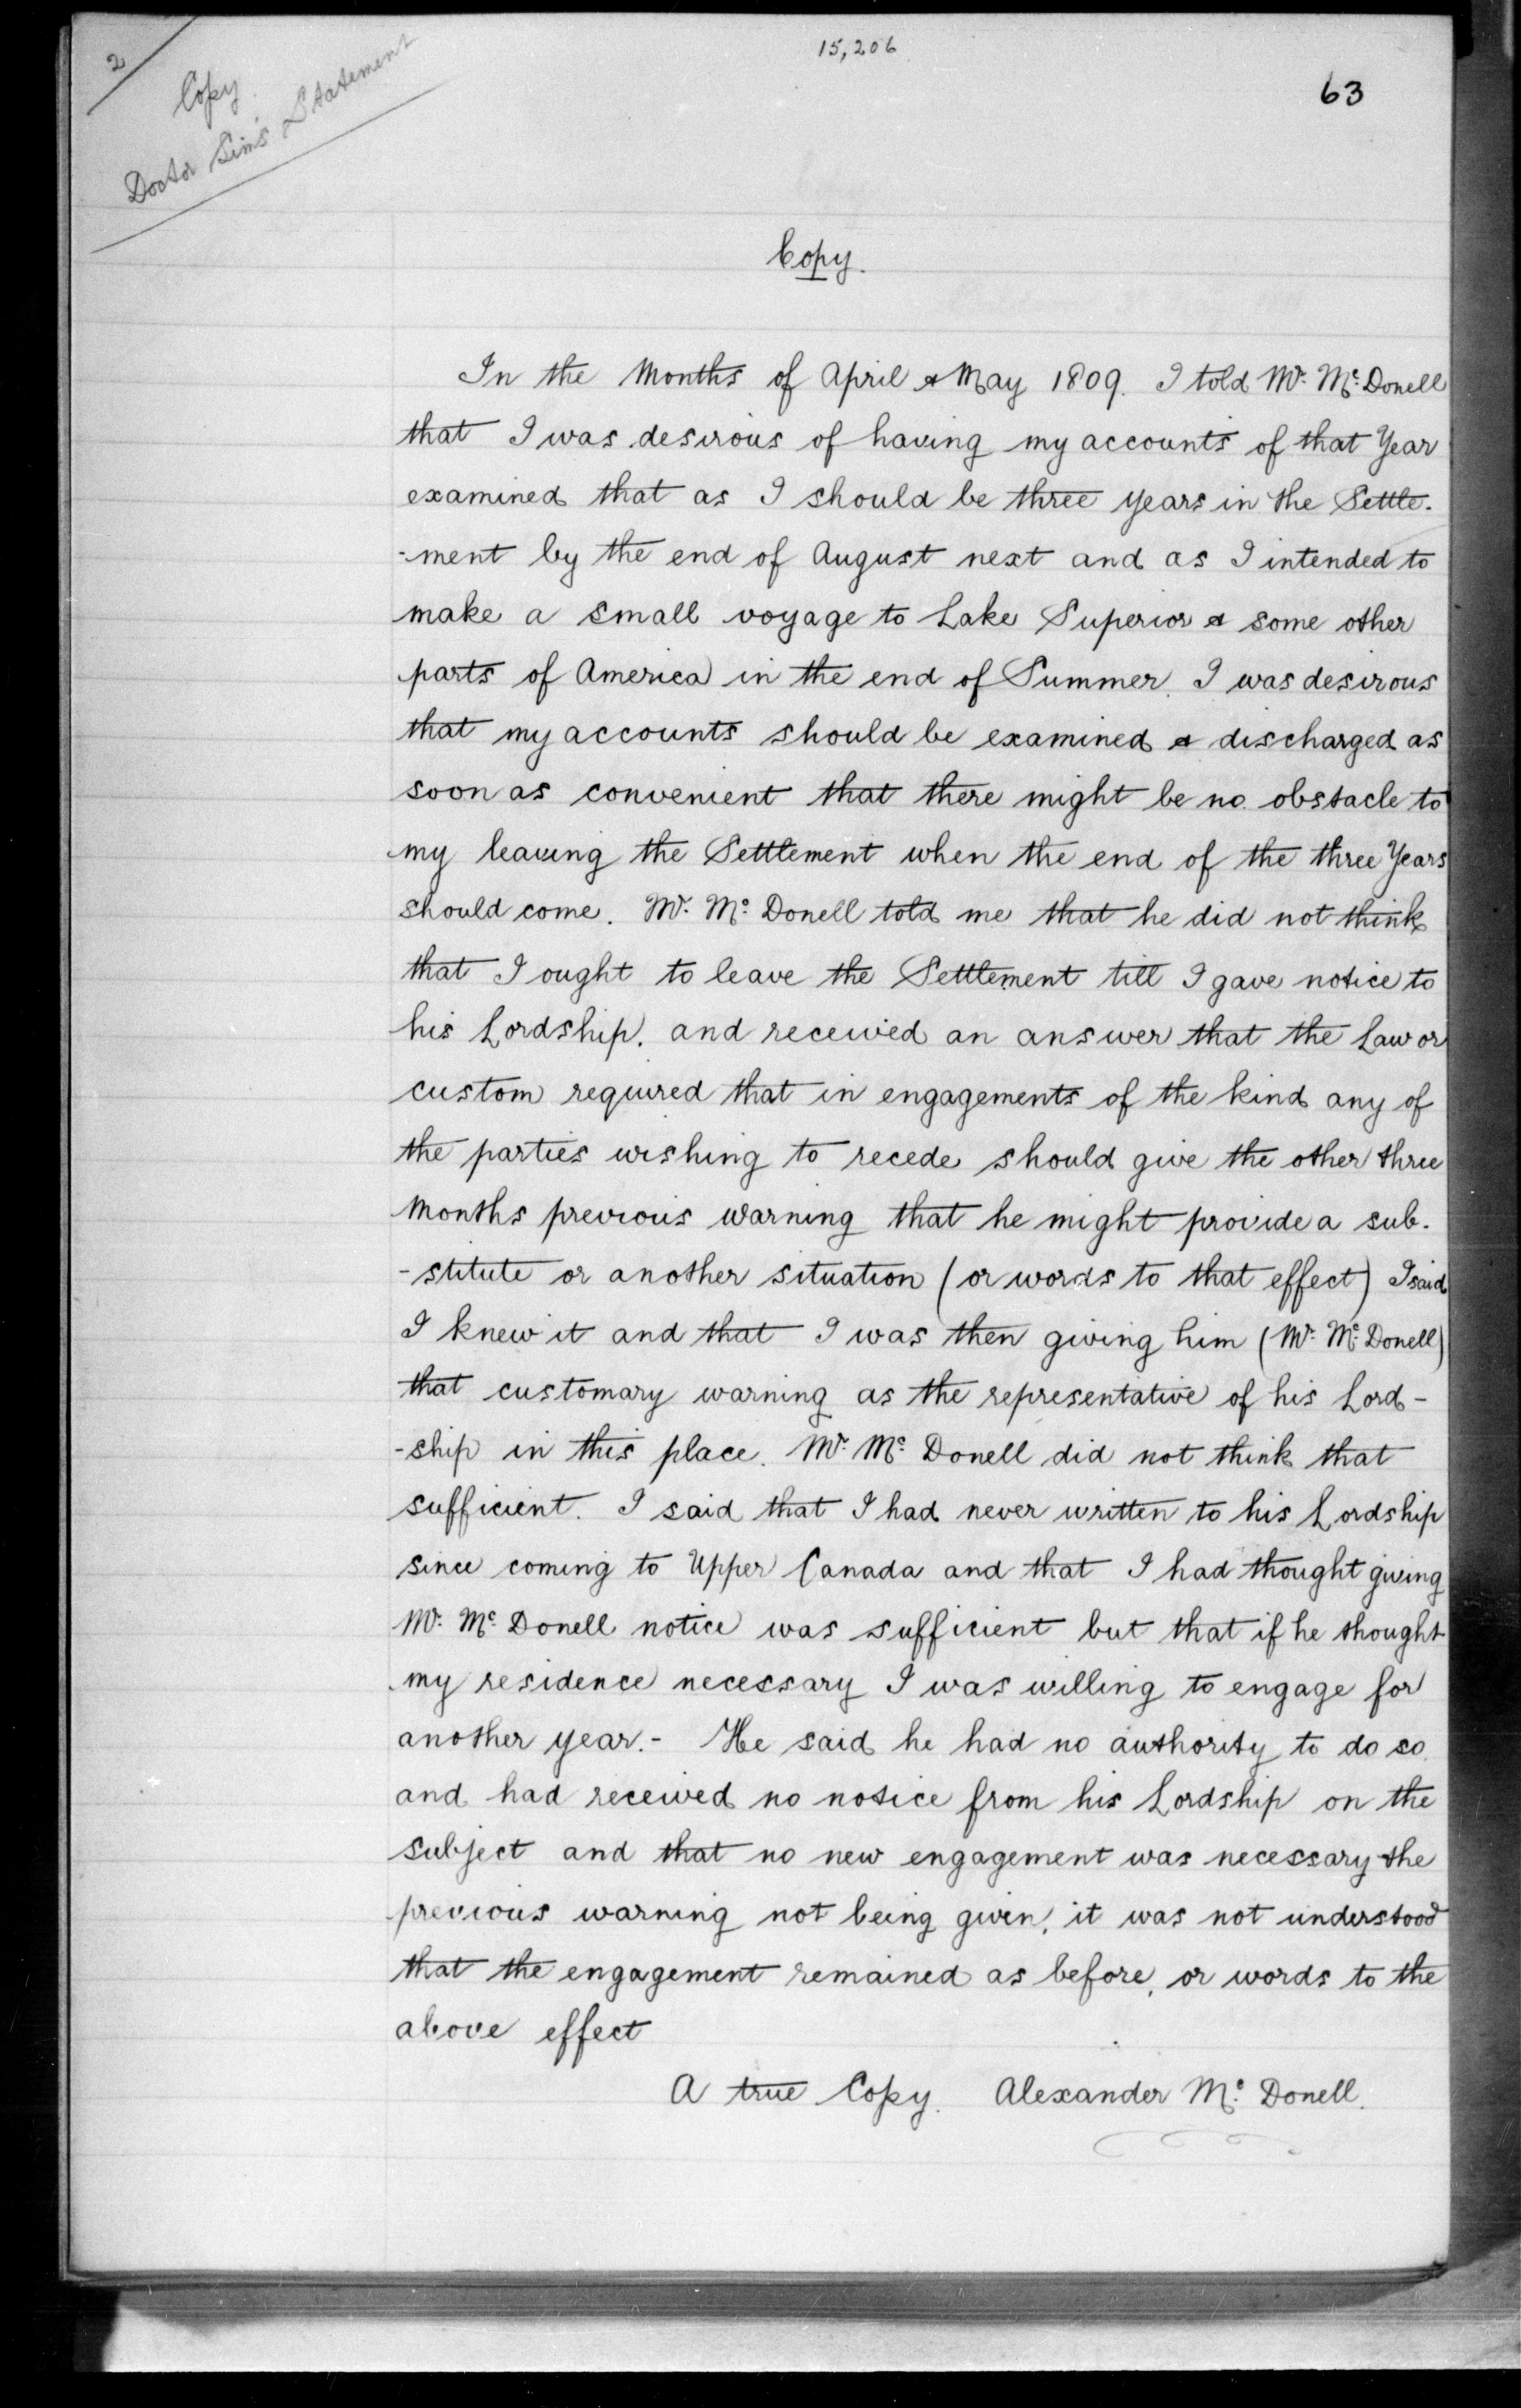 15,206
63
2
Copy.
Doctor Sim's Statement
Copy.
In the Months of April & May 1809. I told Mr. Mc. Donell
that I was desirous of having my accounts of that Year
examined that as I should be three years in the Settle-
-ment by the end of August next and as I intended to
make a small voyage to Lake Superior & some other
parts of America in the end of Summer. I was desirous
that my accounts should be examined & discharged as
soon as convenient that there might be no obstacle to
my leaving the Settlement when the end of the three Years
should come. Mr. Mc. Donell told me that he did not think
that I ought to leave the Settlement till I gave notice to
his Lordship. and received an answer that the Law or
custom required that in engagements of the kind any of
the parties wishing to recede should give the other three
Months previous warning that he might provide a sub-
-stitute or another situation (or words to that effect) I said
I knew it and that I was then giving him (Mr. Mc. Donell)
that customary warning as the representative of his Lord-
-ship in this place. Mr. Mc. Donell did not think that
sufficient. I said that I had never written to his Lordship
since coming to Upper Canada and that I had thought giving
Mr. Mc. Donell notice was sufficient but that if he thought
my residence necessary I was willing to engage for
another year.- He said he had no authority to do so
and had received no notice from his Lordship on the
subject and that no new engagement was necessary the
previous warning not being given, it was not understood
that the engagement remained as before, or words to the
above effect
A true Copy. Alexander Mc. Donell.